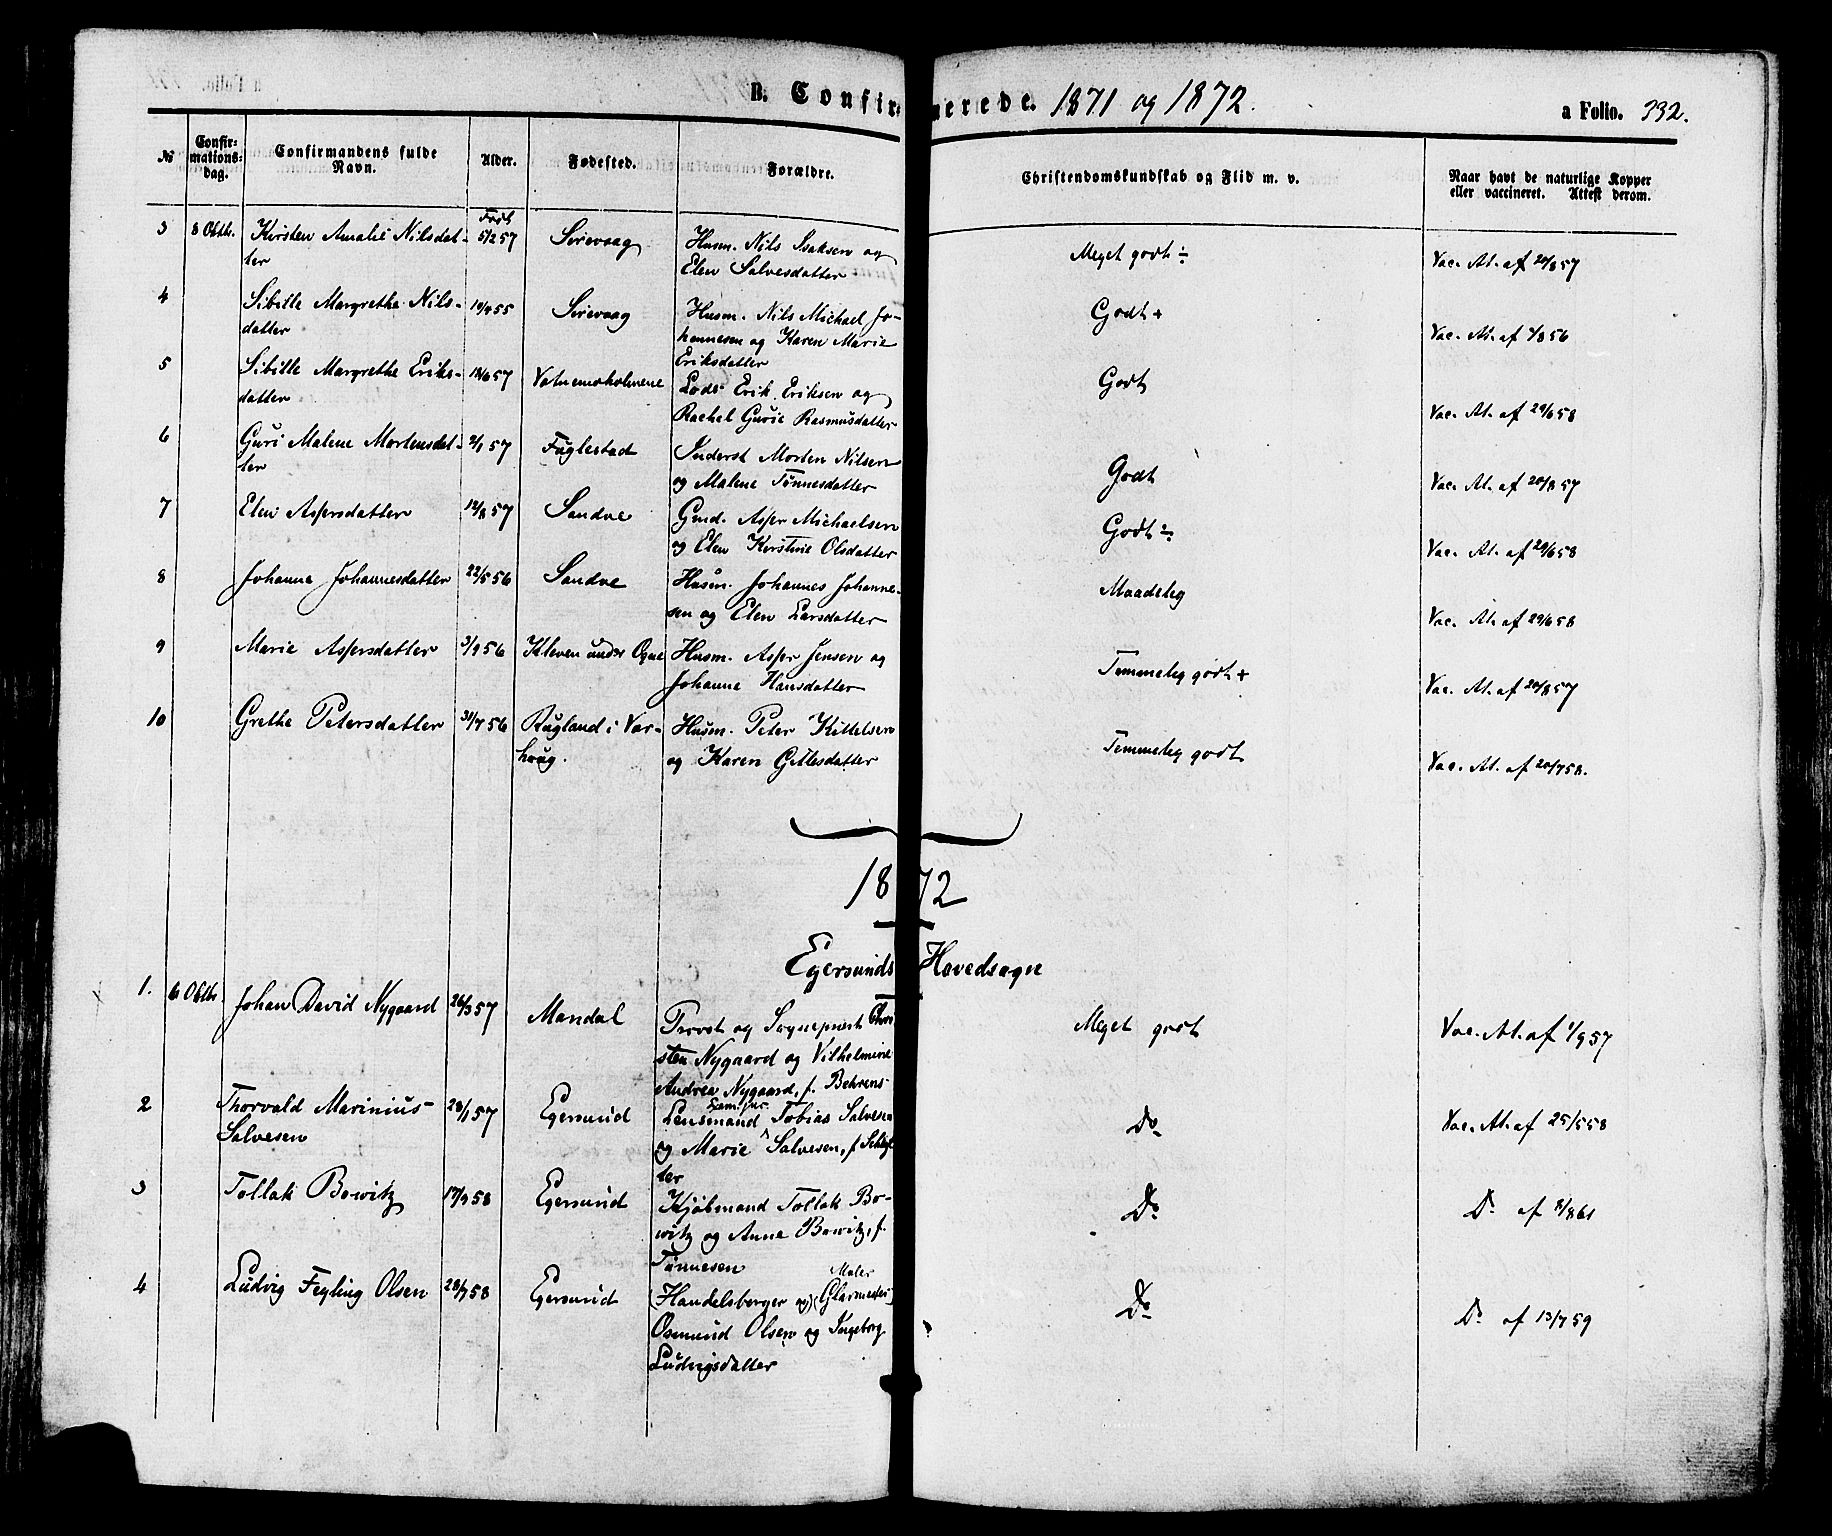 B. Confirmerede. 1871 og 1872.
a Folio. 332.
№ Confirmationsdag. Confirmandens fulde Navn. Alder. Fødested. Forældre. Christendomskundskab og Flid m. v. Naar havt de naturlige Kopper eller vaccineret. Attest derom.
Født
3 8 Octb. Kirsten Amalie Nilsdat- 5/2 57 Sirevaag Husm. Nils Isaksen og Meget godt ÷ Vac. At. af 20/8 57
ter Elen Salvesdatter
4 Sibille Margrethe Nils- 19/9 55 Sirevaag Husm. Nils Michael Jo- Godt + Vac. At. af /8 56
datter hannesen og Karen Marie
Eriksdatter
5 Sibille Margrethe Eriks- 18/6 57 Vatnemoholmene Lods Erik Eriksen og Godt Vac. At. af 29/6 58
datter Rachel Gurie Rasmusdatter
6 Guri Malene Mortensdat- 2/1 57 Fuglestad Inderst Morten Nilsen Godt Vac. At. af 20/8 57
ter og Malene Tønnesdatter
7 Elen Aspersdatter 12/8 57 Sandve Gmd. Asper Michaelsen Godt ÷ Vac. At. af 29/6 58
og Elen Kirstine Olsdatter
8 Johanne Johannesdatter 22/5 56 Sandve Husm. Johannes Johanne- Maadelig Vac. At. af 29/6 58
sen og Elen Larsdatter
9 Marie Aspersdatter 3/9 56 Kleven under Ogne Husm. Asper Jensen og Temmelig godt + Vac. At. af 20/8 57
Johanne Hansdatter
10 Grethe Petersdatter 31/7 56 Rugland i Var- Husm. Peter Kittelsen Temmelig godt Vac. At. af 20/7 58.
houg. og Karen Gitlesdatter
1872
Egersunds Hovedsogn
1. 6 Octb. Johan David Nygaard 26/3 57 Mandal Provst og Sognepræst Chri Meget godt Vac. At. af 1/9 57
sten Nygaard og Vilhelmine
Andrea Nygaard, f. Behrens
2 Thorvald Marinius 28/1 57 Egersund Lensmand Tobias Salvesen Do Vac. At. af 25/5 58
Salvesen og Marie Salvesen, f. Schlyt
ter
3 Tollak Bowitz 17/9 58 Egersund Kjøbmand Tollak Bo- Do Do af 8/8 61
witz og Anne Bowitz, f.
Tønnesen
Maler
4 Ludvig Feyling Olsen 28/7 58 Egersund (Handelsborger og) (Glarmester) Do Do af 13/7 59
Osmund Olsen og Ingeborg
Ludvigsdatter